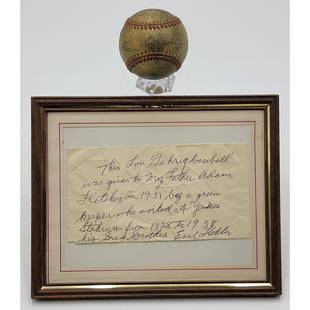 This Lou Gehrig baseball
was given to my Father Adam
Fletcher in 1931 by a green
keeper who worked at Yankee
Stadium from 1928 to 1938
his Great Brother Earl